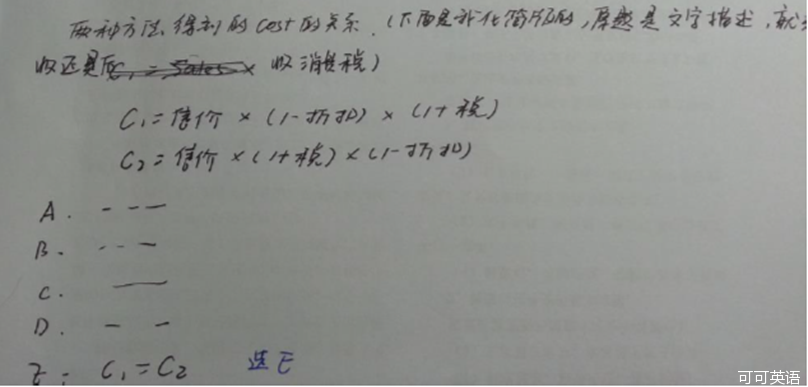 两种方法得到的cost的关系.(下面是我化简后的,原题是文字描述,就
收还是后 C₁ = Sales x 收消费税)
C₁=售价×(1-折扣)×(1+税)
C₂=售价×(1+税)×(1-折扣)
A. - - -
B. - - -
C. —
D. - -
E. C₁=C₂ 选E
可可英语